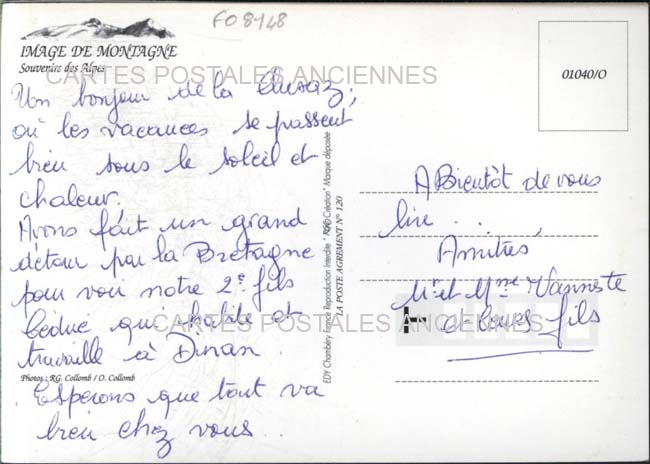 FO 8448
IMAGE DE MONTAGNE
Souvenirs des Alpes
CARTES POSTALES ANCIENNES
01040/O
Un bonjour de la Clusaz,
où les vacances se passent
bien sous le soleil et
chaleur.
Avons fait un grand
détour par la Bretagne
pour voir notre 2e fils
Cédric qui habite et
travaille à Dinan.
Photos : RG. Collomb / O. Collomb
Esperons que tout va
bien chez vous..
EDY Chambéry France Reproduction Interdite " Création" Marque déposée
"LA POSTE AGREMENT N° 120
A Bientôt de vous
lire...
Amitiés,
Mr et Mme Vanneste
et leurs fils
CARTES POSTALES ANCIENNES